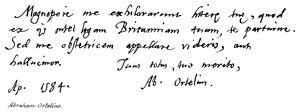 Magnopere me exhilararunt literę tuę, quod
ex ijs intelligam Britanniam tuam, te parturire.
Sed me obstetricem appellare videris, aut
hallucinor. Tuus totus, tuo merito,
Ap. 1584. Ab. Ortelius.
Abraham Ortelius.